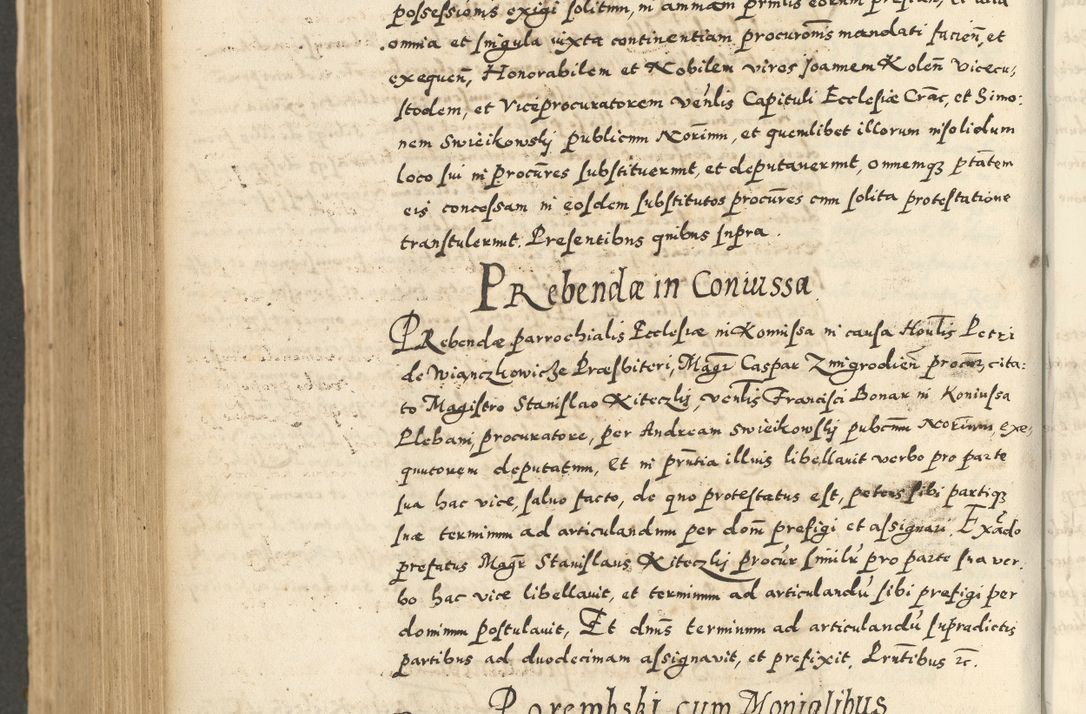 possessionis exigi solitum, in ammam
omnia et singula iuxta continentiam procuronis mandati facien, et
exequen, Honorabilem et Nobilem viros Joannem Kolen Vicecu,
stodem, et Viceprocuratorem venlis Capituli Ecclesiæ Crac, et Simo:
nem Swieikowskij publicum Norium, et quemlibet illorum insolidum
loco sui in procures substituerunt, et deputauerunt, omnemq ptatem
eis concessam in eosdem substitutos procures cum solita protestatione
transtulerunt. Presentibus quibus supra.
PRebendæ in Coniussa
PRebendæ parrochialis Ecclesiæ in Komissa in causa Honlis Petri
de Wianczkowicze Præsbiteri, Magr Caspar Zmigrodien procur, cita:
to Magistro Stanislao Kiteczkij, venlis Francisci Bonar in Koniussa
Plebani, procuratore, per Andream Swieikowskij pubcum Norium, exe,
quutorem deputatum, Et in pruntia illius libellauit verbo pro parte
sua hac vice, saluo facto, de quo protestatus est, petens sibi partiq
suæ terminum ad articulandum per dom prefigi et assignari. Exado
prefatus Magr Stanislaus Kiteczkij procur similr pro parte sua ver.
bo hac vice libellauit, et terminum ad articulandu sibi prefigi per
dominum postulauit, Et dnus terminum ad articulandu supradictis
partibus ad duodecimam assignavit, et prefixit. Pruntibus &c.
Porembski cum Monialibus